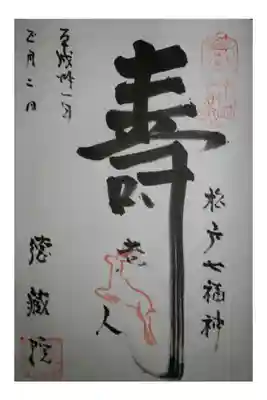 松戸七福神
壽老人
平成卅一年
正月二日
徳蔵院